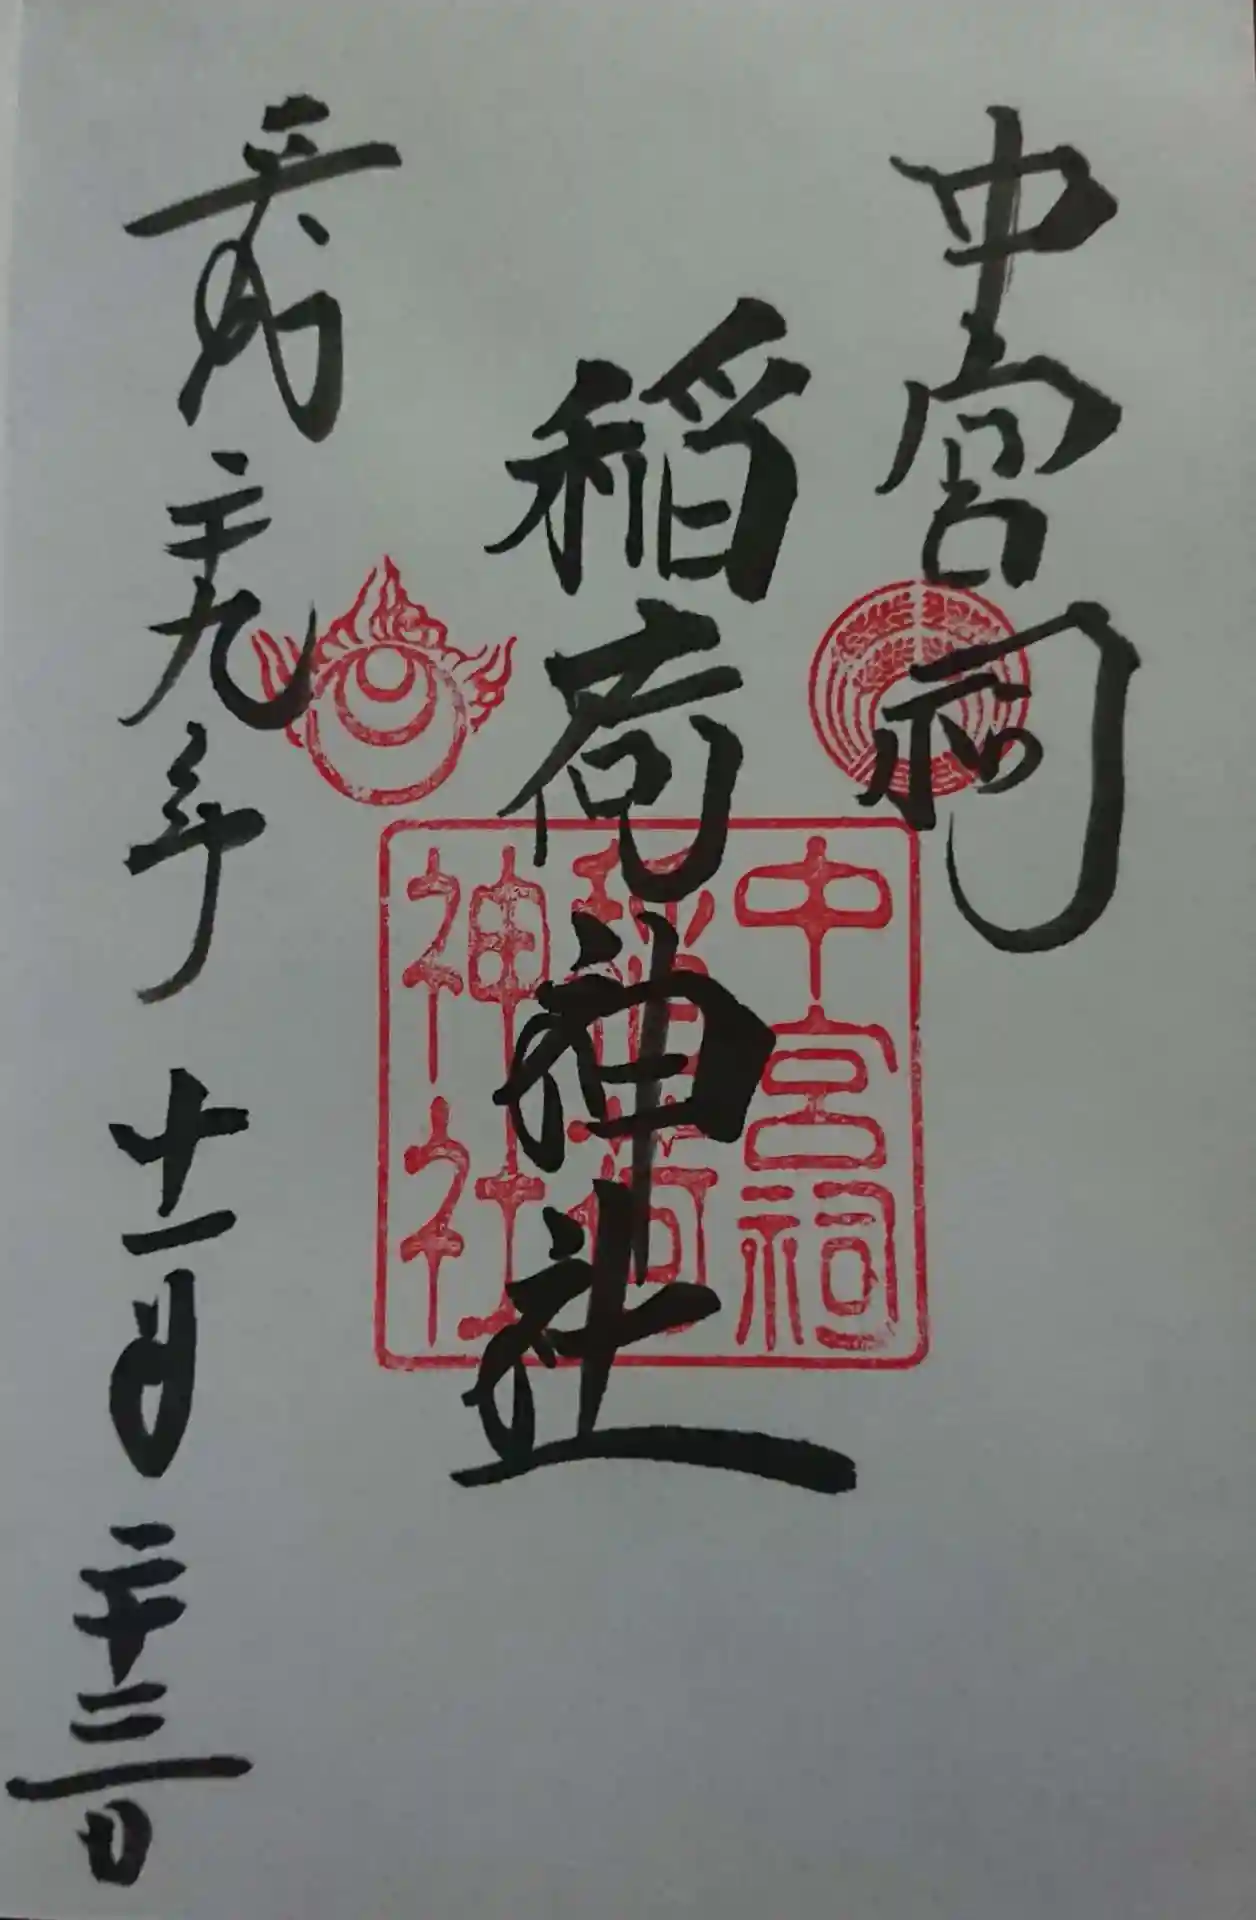 中宮祠
稲荷神社
平成二十九年十一月二十三日
中宮祠
稲荷
神社